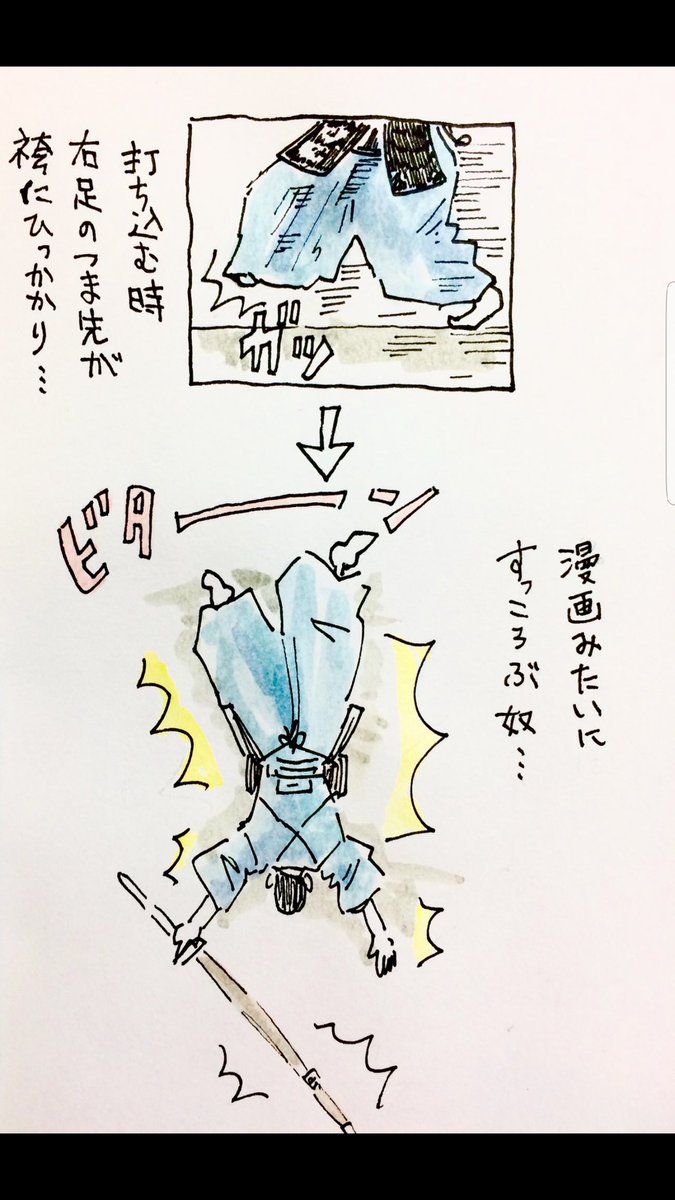 打ち込む時
右足のつま先が
袴にひっかかり…
ガッ
ビターン
漫画みたいに
すっころぶ奴…